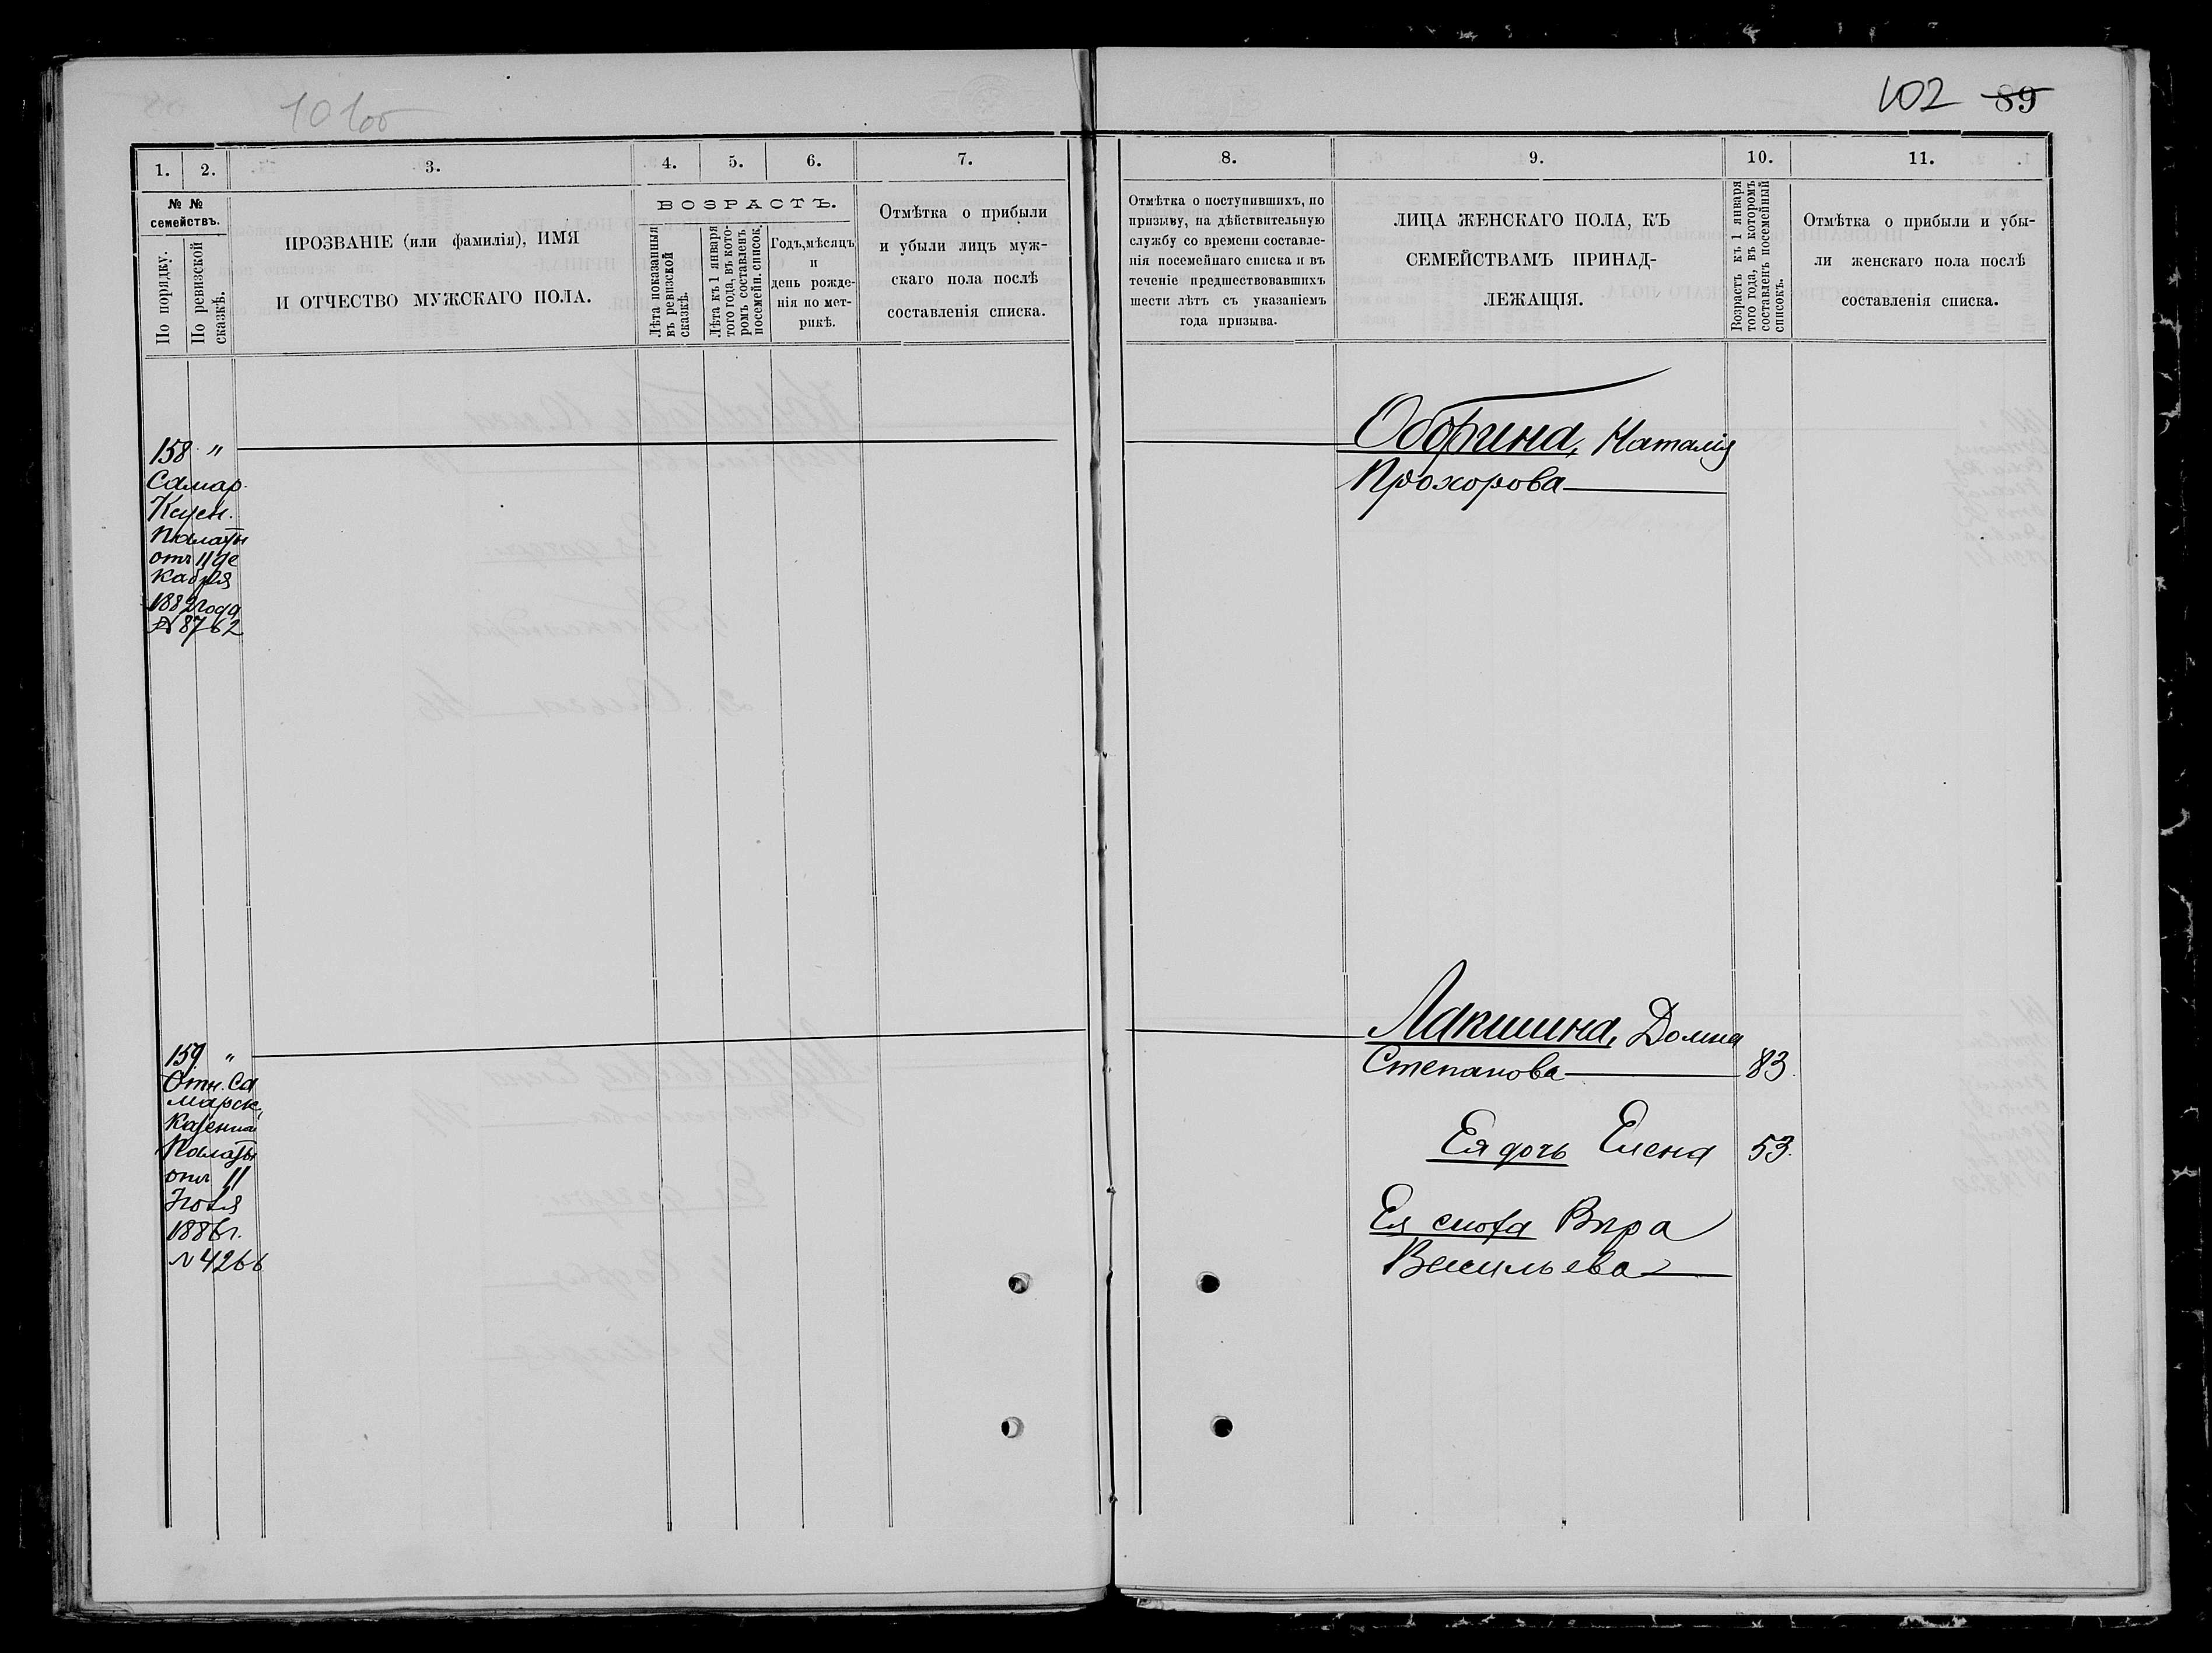 102 89
1. 2. 3. 4. 5. 6. 7.
№ №
семействъ.
По порядку.
По ревизской
сказкѣ.
ПРОЗВАНІЕ (или фамилія), ИМЯ
И ОТЧЕСТВО МУЖСКАГО ПОЛА.
ВОЗРАСТЪ.
Лѣта показанныя
въ ревизской
сказкѣ.
Лѣта къ 1 января
того года, въ кото-
ромъ составленъ
посемейн. список.
Годъ, мѣсяцъ
и
день рожде-
нія по мет-
рикѣ.
Отмѣтка о прибыли
и убыли лицъ муж-
скаго пола послѣ
составленія списка.
158 "
Самар.
Казен.
Палаты
отъ 11 де
кабря
1882 года
№ 8762
159 "
Отн. Са
марск.
Казенной
Палаты
отъ 11
Іюля
1886 г.
№ 4266
8. 9. 10. 11.
Отмѣтка о поступившихъ, по
призыву, на дѣйствительную
службу со времени составле-
нія посемейнаго списка и въ
теченіе предшествовавшихъ
шести лѣтъ съ указаніемъ
года призыва.
ЛИЦА ЖЕНСКАГО ПОЛА, КЪ
СЕМЕЙСТВАМЪ ПРИНАД-
ЛЕЖАЩІЯ.
Возрастъ къ 1 января
того года, въ которомъ
составленъ посемейный
списокъ.
Отмѣтка о прибыли и убы-
ли женскаго пола послѣ
составленія списка.
Оборина, Наталія
Прохорова
Лакшина, Домна
Степанова 83.
Ея дочь Елена 53.
Ея сноха Вѣра
Васильева